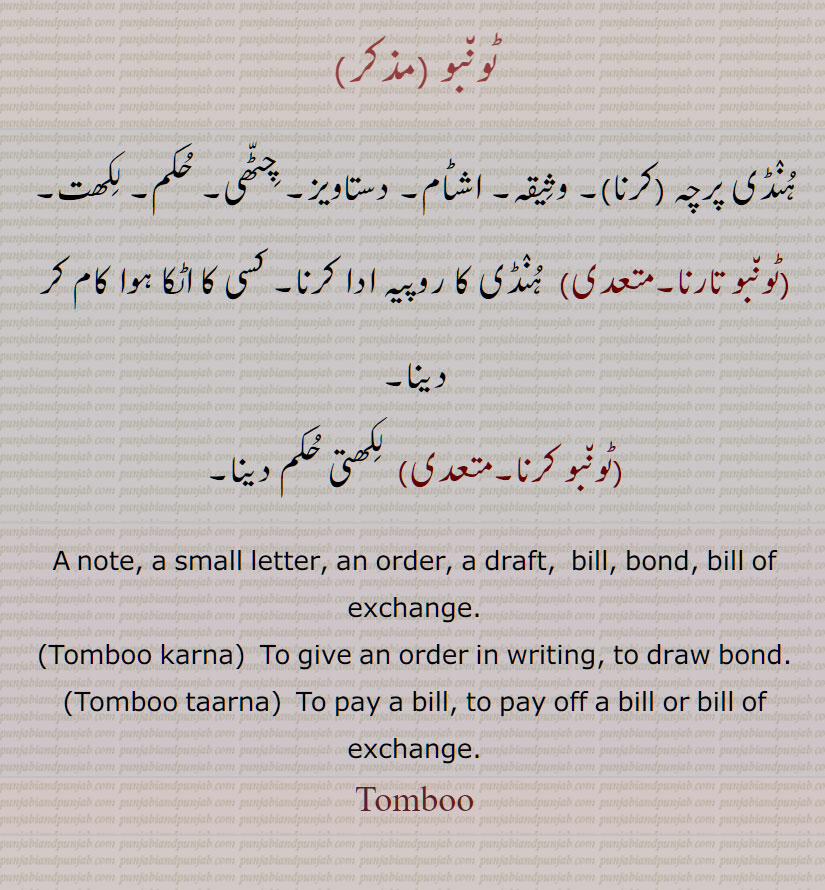 ٹونّبو (مذکر)
ہُنْڈی پرچہ (کرنا)۔ وثِیقہ۔ اشٹام۔ دستاویز۔ چِٹّھی۔ حُکم۔ لِکھت۔
(ٹونّبو تارنا۔متعدی) ہُنْڈی کا روپیہ ادا کرنا۔ کسی کا اٹکا ہوا کام کر
دینا۔
(ٹونّبو کرنا۔متعدی) لِکھتی حُکم دینا۔
A note, a small letter, an order, a draft, bill, bond, bill of
exchange.
(Tomboo karna) To give an order in writing, to draw bond.
(Tomboo taarna) To pay a bill, to pay off a bill or bill of
exchange.
Tomboo